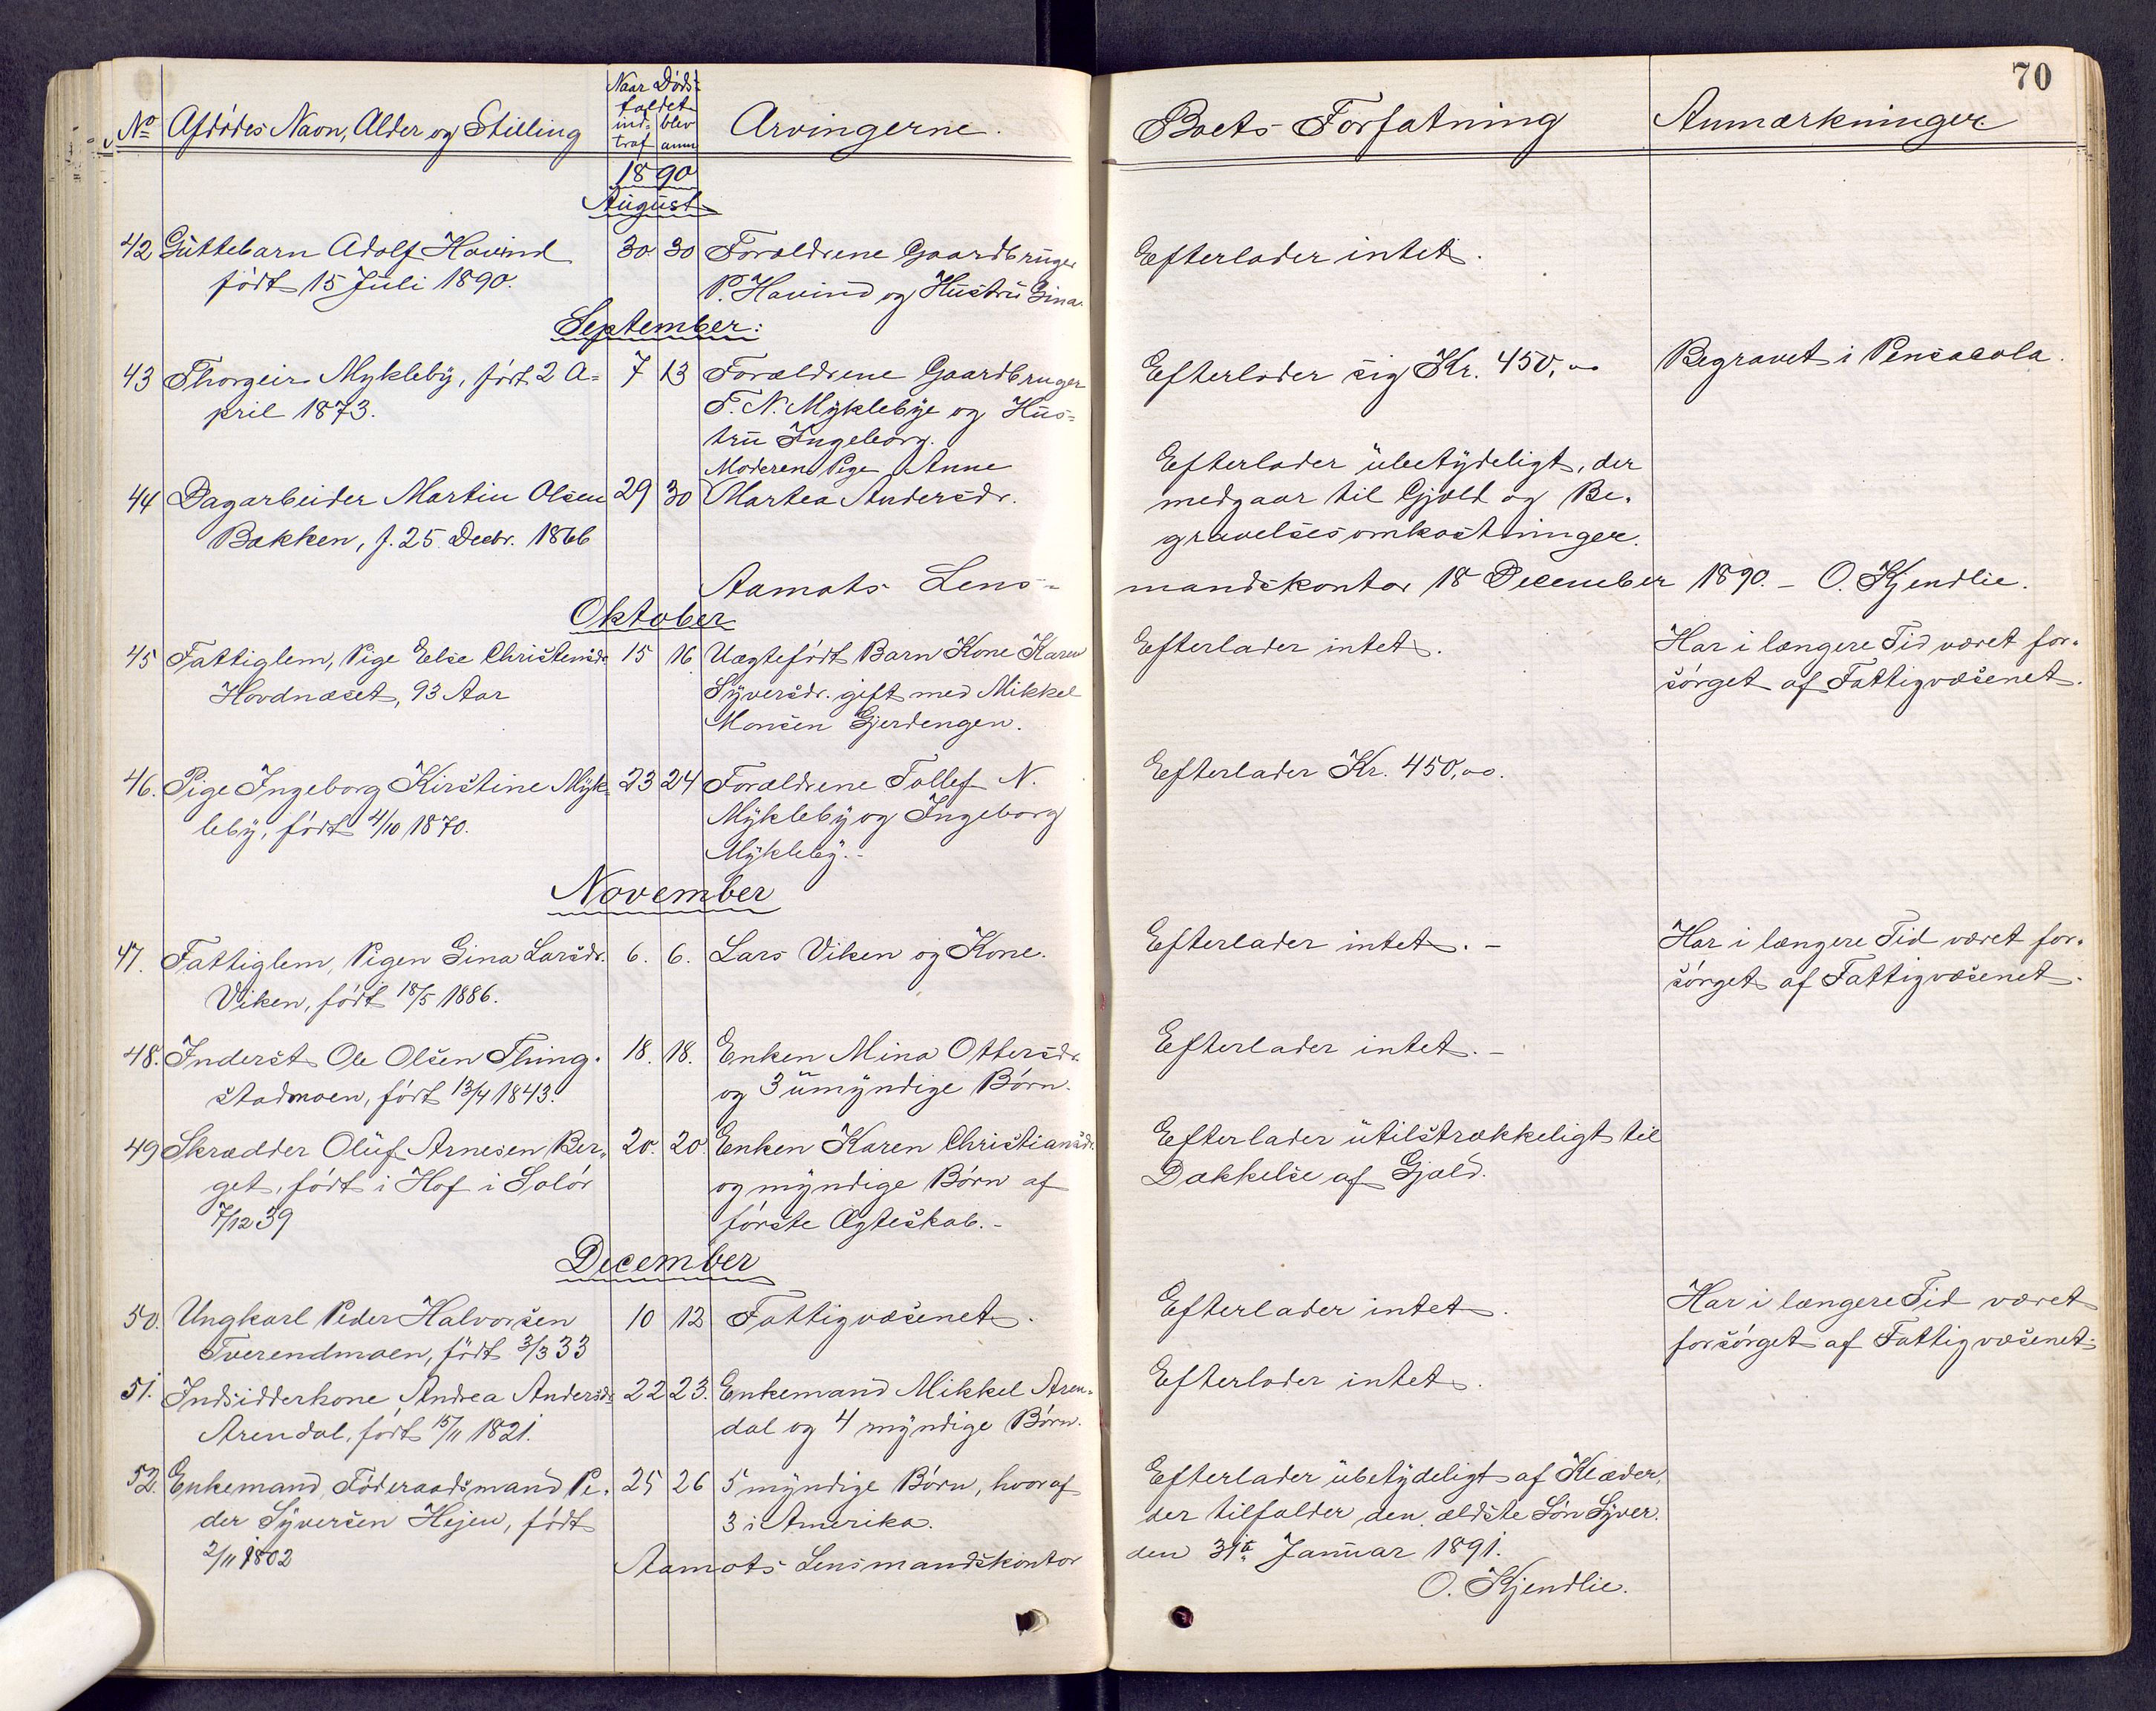 70
No Afdødes Navn, Alder og Stilling
Naar Døds-
faldet
ind- blev
traf anm
Arvingerne.
Boets Forfatning
Anmærkninger
1890
August
42 Guttebarn Adolf Hovind 30. 30 Forældrene Gaardbruger Efterlader intet.
født 15 Juli 1890. P. Hovind og Hustru Gina.
September:
43 Thorgeir Mykleby, født 2 A= 7 13 Forældrene Gaardbruger Efterlader sig Kr. 450,00 Begravet i Pensacola.
pril 1873. T. N. Myklebye og Hus=
tru Ingeborg.
Moderen Pige Anne Efterlader ubetydeligt, der
44 Dagarbeider Martin Olsen 29 30 Martea Andersdr. medgaar til Gjæld og Be-
Bakken, f. 25 Decbr. 1866 gravelsesomkostninger.
Aamots Lens- mandskontor 18 December 1890. - O. Kjendlie.
Oktober
45 Fattiglem, Pige Else Christensdr 15 16 Uægtefødt Barn Kone Karen Efterlader intet. Har i længere Tid været for-
Hovdnæset, 93 Aar Syversdr. gift med Mikkel sørget af Fattigvæsenet.
Monsen Gjerdengen.
46. Pige Ingeborg Kirstine Myk- 23 24 Forældrene Tollef N. Efterlader Kr. 450,00.
leby, født 4/10 1870. Mykleby og Ingeborg
Mykleby.-
November
47. Fattiglem, Pigen Gina Larsdr. 6. 6. Lars Viken og Kone. Efterlader intet. - Har i længere Tid været for-
Viken, født 18/5 1886. sørget af Fattigvæsenet.
48. Inderst Ole Olsen Thing- 18. 18. Enken Mina Ottersdr. Efterlader intet. -
stadmoen, født 13/4 1843. og 3 umyndige Børn.
49 Skrædder Oluf Arnesen Ber- 20. 20. Enken Karen Christiansdr. Efterlader utilstrækkeligt til
get, født i Hof i Solør og myndige Børn af Dækkelse af Gjæld.
7/12 39 første Ægteskab. -
December
50. Ungkarl Peder Halvorsen 10 12 Fattigvæsenet. Efterlader intet. Har i længere Tid været
Tverendmoen, født 3/3 33 forsørget af Fattigvæsenet.
51. Indsidderkone Andrea Andersdr 22 23. Enkemand Mikkel Aren- Efterlader intet.
Arendal, født 15/11 1821. dal og 4 myndige Børn.
52. Enkemand Føderaadsmand Pe- 25 26 5 myndige Børn, hvoraf Efterlader ubetydeligt af Klæder,
der Syversen Hejen, født 3 i Amerika. der tilfalder den ældste Søn Syver.
2/11 1802 Aamots Lensmandskontor den 31te Januar 1891.
O. Kjendlie.